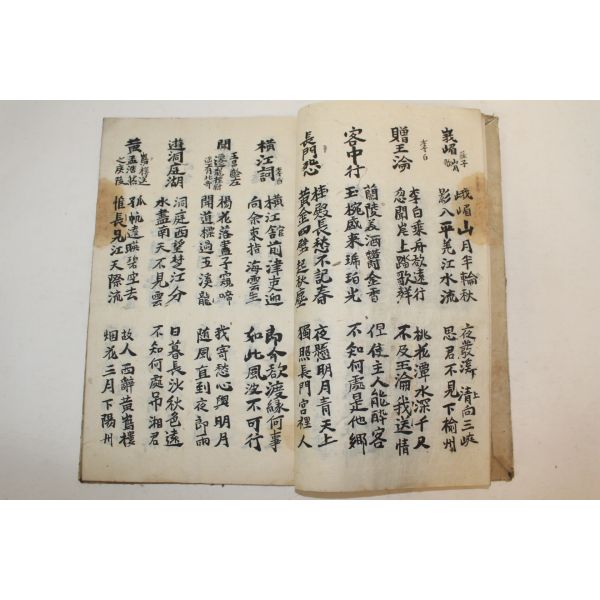 峩嵋
李白
峨嵋山月半輪秋 夜發溪淸向三峽
影入平羌江水流 思君不見下楡州
贈王淪
李白
李白乘舟欲遠行 桃花潭水深千尺
忽聞岸上踏歌鮮 不及王淪我送情
客中行
蘭陵美酒鬱金香 但使主人能醉客
玉椀盛來琥珀光 不知何處是他鄕
長門怨
桂殿長愁不記春 夜懸明月靑天上
黃金四壁起秋塵 獨照長門宮裡人
橫江詞
李白
橫江舘前津吏迎 郎今欲渡緣何事
向余東指海雲生 如此風波不可行
聞
王昌齡左
遷龍標尉
遙有此寄
楊花落盡子窺啼 我寄愁心與明月
聞道標過五溪龍 隨風直到夜郎雨
遊洞庭湖
洞庭西望楚江分 日暮長沙秋色遠
水盡南天不見雲 不知何處吊湘君
黃
鶴樓送
孟浩然
之廣陵
孤帆遠暎碧空去 故人西辭黃鶴樓
惟長見江天際流 烟花三月下陽州